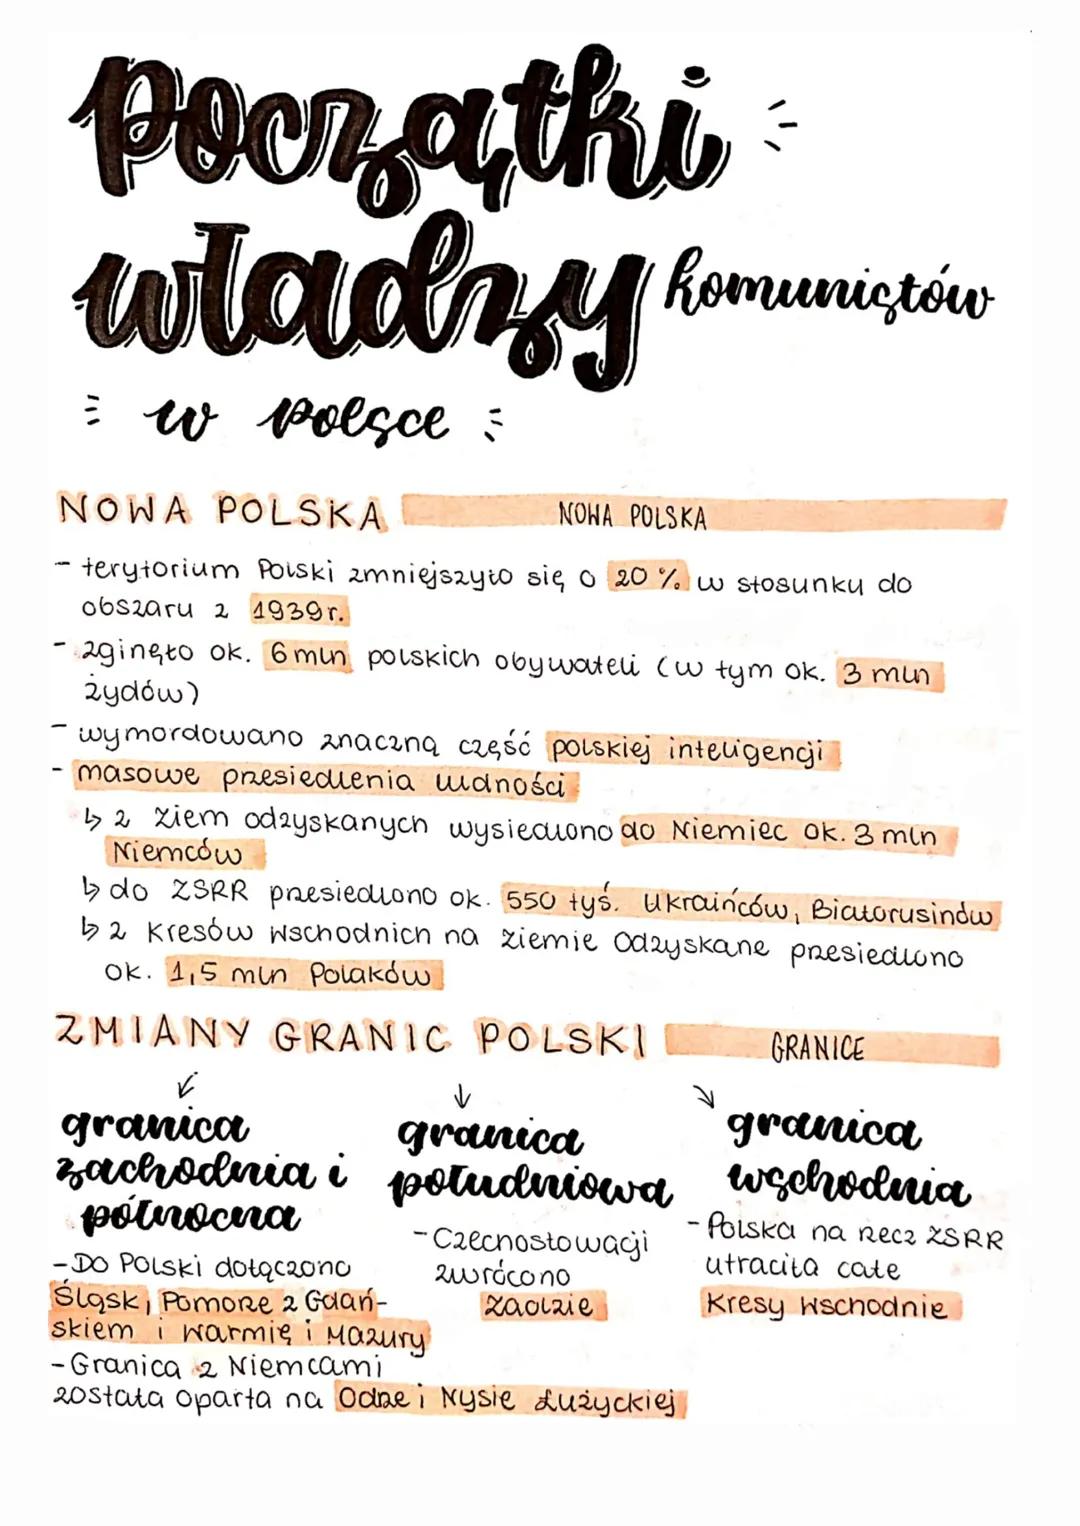 początki
władzy komunistów
w polsce
NOWA POLSKA NOWA POLSKA
- terytorium Polski zmniejszyło się o 20 % w stosunku do
obszaru z 1939r.
- zginęło ok. 6 mln polskich obywateli (w tym ok. 3 mln
żydów)
- wymordowano znaczną część polskiej inteligencji
- masowe przesiedlenia ludności
↳ z ziem odzyskanych wysiedlono do Niemiec ok. 3 mln
Niemców
↳ do ZSRR przesiedlono ok. 550 tyś. Ukraińców, Białorusinów
↳ z Kresów Wschodnich na ziemie Odzyskane przesiedlono
ok. 1,5 mln Polaków
ZMIANY GRANIC POLSKI GRANICE
granica
zachodnia i
północna
- Do Polski dołączono
Śląsk, Pomorze z Gdań-
skiem i Warmię i Mazury
- Granica z Niemcami
została oparta na Odrze i Nysie Łużyckiej
granica
południowa
- Czechosłowacji
zwrócono
Zaolzie
granica
wschodnia
- Polska na rzecz ZSRR
utraciła całe
Kresy Wschodnie